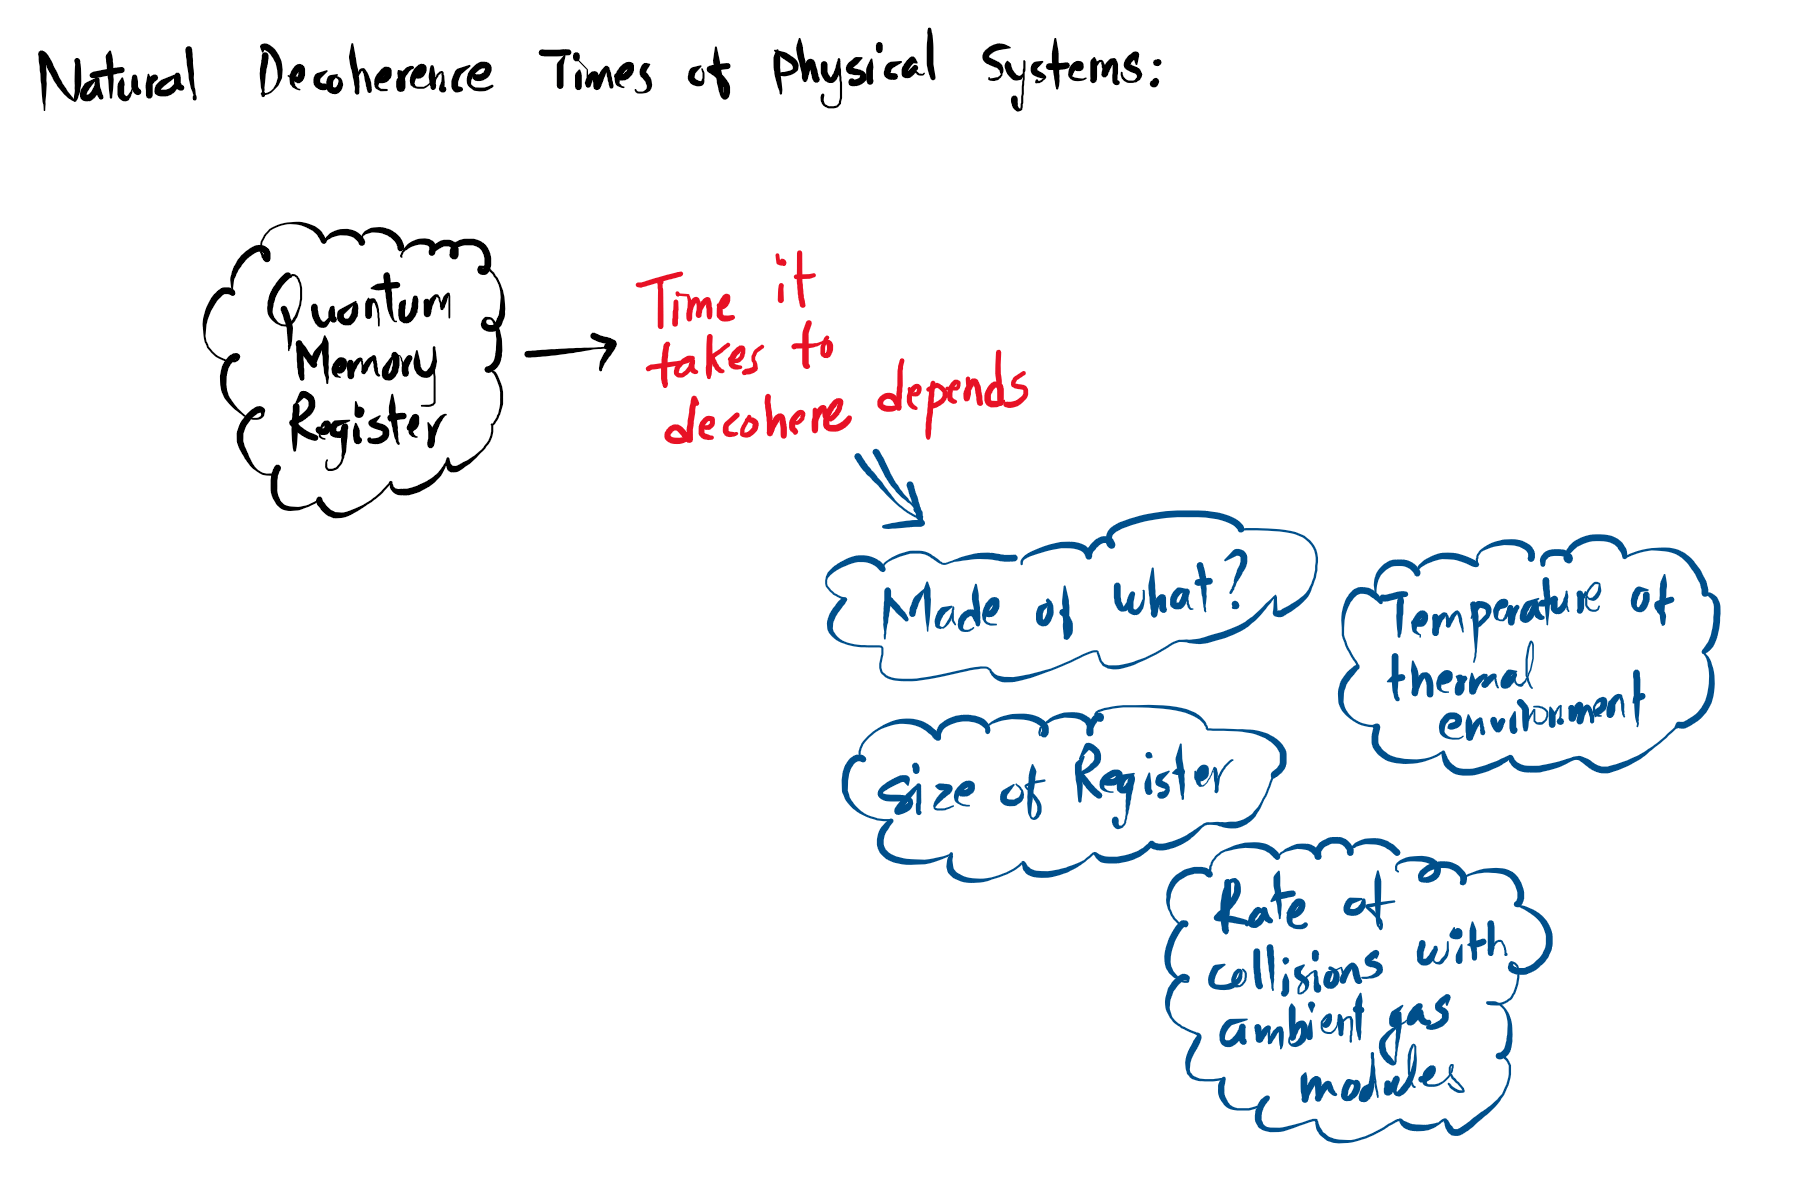 Natural Decoherence Times of Physical Systems:
Quantum
Memory
Register
Time it
takes to
decohere depends
Made of what?
Temperature of
thermal
environment
Size of Register
Rate of
collisions with
ambient gas
modules